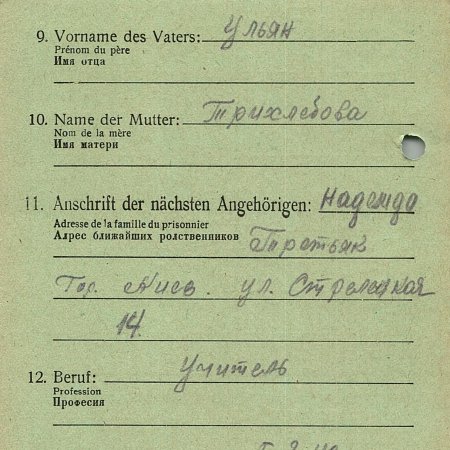 9. Vorname des Vaters: Ульян
Prénom du père
Имя отца
10. Name der Mutter: Трихлебова
Nom de la mère
Имя матери
11. Anschrift der nächsten Angehörigen: Надежда
Adresse de la famille du prisonnier
Алрес ближайших ролственников Третьяк
Гор. Киев. ул. Стрелецкая
14.
12. Beruf: Учитель
Profession
Професия